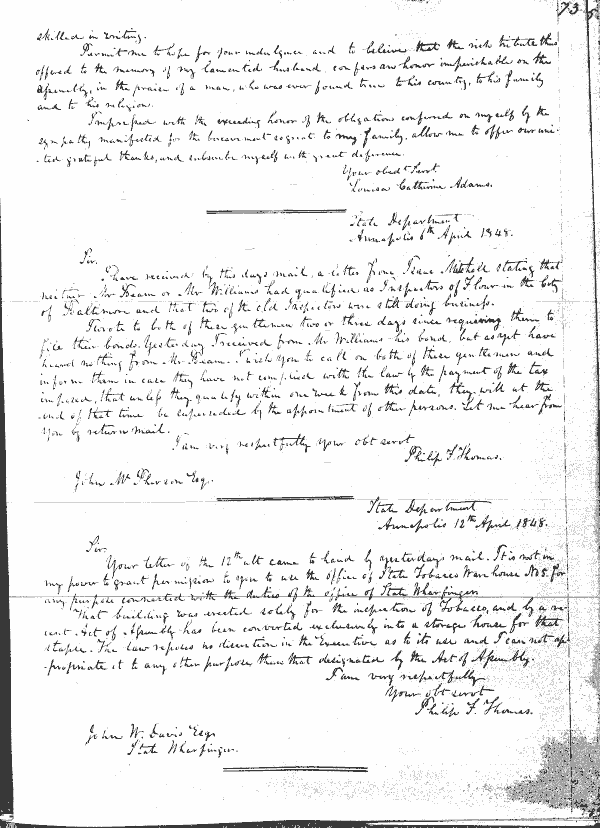 73
skilled in writing.
Permit me to hope for your indulgence and to believe that the rich tribute thus
offered to the memory of my lamented husband, confers an honor imperishable on the
Assembly, in the praise of a man, who was ever found true to his country, to his family
and to his religion.
Impressed with the exceeding honor of the obligation conferred on myself by the
sympathy manifested for the bereavement so great to my family, allow me to offer our uni-
-ted grateful thanks, and subscribe myself with great deference.
Your obedt Servt
Louisa Catherine Adams.
State Department
Annapolis 6th April 1848.
Sir.
I have received by this days mail, a letter from Isaac Mitchell stating that
neither Mr Beam or Mr Williams had qualified as Inspectors of Flour in the City
of Baltimore and that two of the old Inspectors were still doing business.
I wrote to both of these gentlemen two or three days since requiring them to
file their bonds. Yesterday I received from Mr Williams his bond, but as yet have
heard nothing from Mr Beam. I wish you to call on both of these gentlemen and
inform them in case they have not complied with the law by the payment of the tax
imposed, that unless they qualify within one week from this date, they will at the
end of that time be superseded by the appointment of other persons. Let me hear from
you by return mail.
I am very respectfully your obt servt
Philip F. Thomas.
John McPherson Esq.
State Department
Annapolis 12th April 1848.
Sir.
Your letter of the 12th ult came to hand by yesterdays mail. It is not in
my power to grant permission to you to use the office of State Tobacco Warehouse No 5. for
any purpose connected with the duties of the office of State Wharfinger.
That building was erected solely for the inspection of Tobacco, and by a re-
cent Act of Assembly has been converted exclusively into a storage house for that
staple. The law reposes no discretion in the Executive as to its use and I can not ap
-propriate it to any other purpose than that designated by the Act of Assembly.
I am very respectfully
Your obt servt
Philip F. Thomas.
John W. Davis Esqr
State Wharfinger.